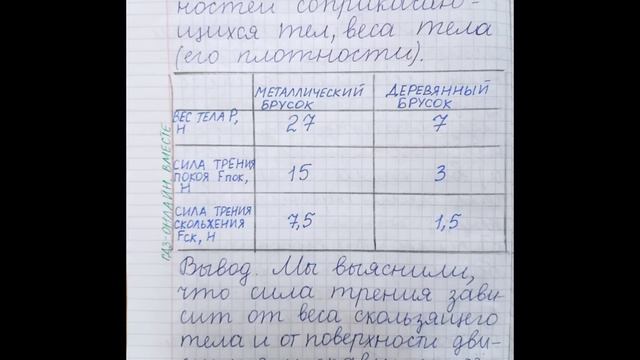 ностей соприкасаю-
щихся тел, веса тела
(его плотности).
МЕТАЛЛИЧЕСКИЙ БРУСОК ДЕРЕВЯННЫЙ БРУСОК
ВЕС ТЕЛА P, Н 27 7
СИЛА ТРЕНИЯ ПОКОЯ Fпок, Н 15 3
СИЛА ТРЕНИЯ СКОЛЬЖЕНИЯ Fск, Н 7,5 1,5
ГДЗ-ОНЛАЙН ВМЕСТЕ
Вывод. Мы выяснили,
что сила трения зави
сит от веса скользящего
тела и от поверхности дви-